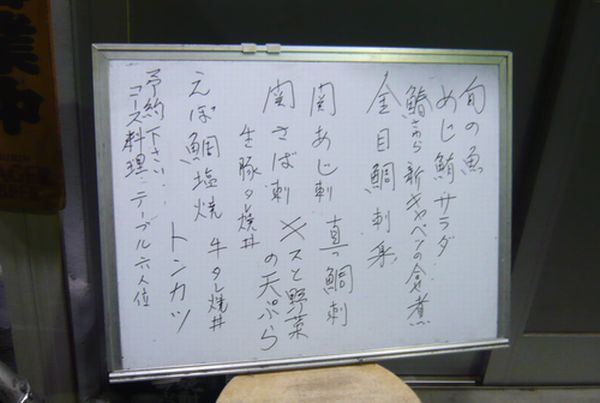 旬の魚
めじ鮪サラダ
鰆さわら新キャベツの煮
金目鯛刺身
関あじ刺 真つ鯛刺
関さば刺 キスと野菜の天ぷら
生豚タレ焼丼
えぼ鯛塩焼 牛タレ焼丼
トンカツ
予約下さい…
コース料理・テーブル六人位
業中